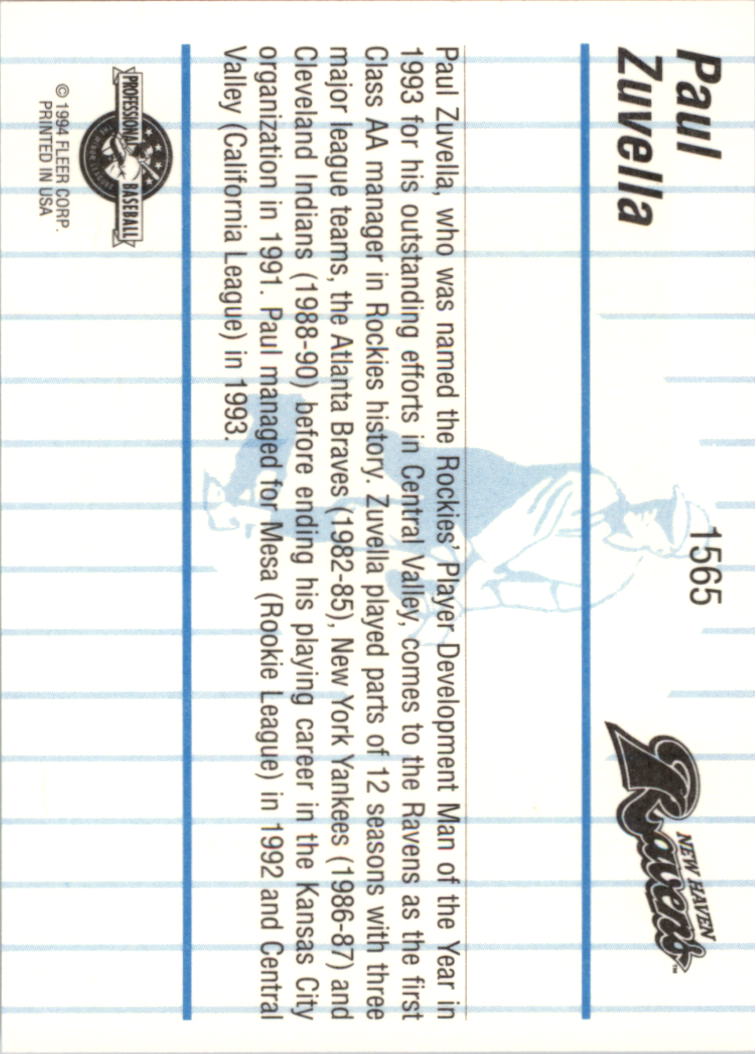 Paul
Zuvella
1565
NEW HAVEN
Ravens™
Paul Zuvella, who was named the Rockies' Player Development Man of the Year in
1993 for his outstanding efforts in Central Valley, comes to the Ravens as the first
Class AA manager in Rockies history. Zuvella played parts of 12 seasons with three
major league teams, the Atlanta Braves (1982-85), New York Yankees (1986-87) and
Cleveland Indians (1988-90) before ending his playing career in the Kansas City
organization in 1991. Paul managed for Mesa (Rookie League) in 1992 and Central
Valley (California League) in 1993.
PROFESSIONAL BASEBALL
© 1994 FLEER CORP.
PRINTED IN USA